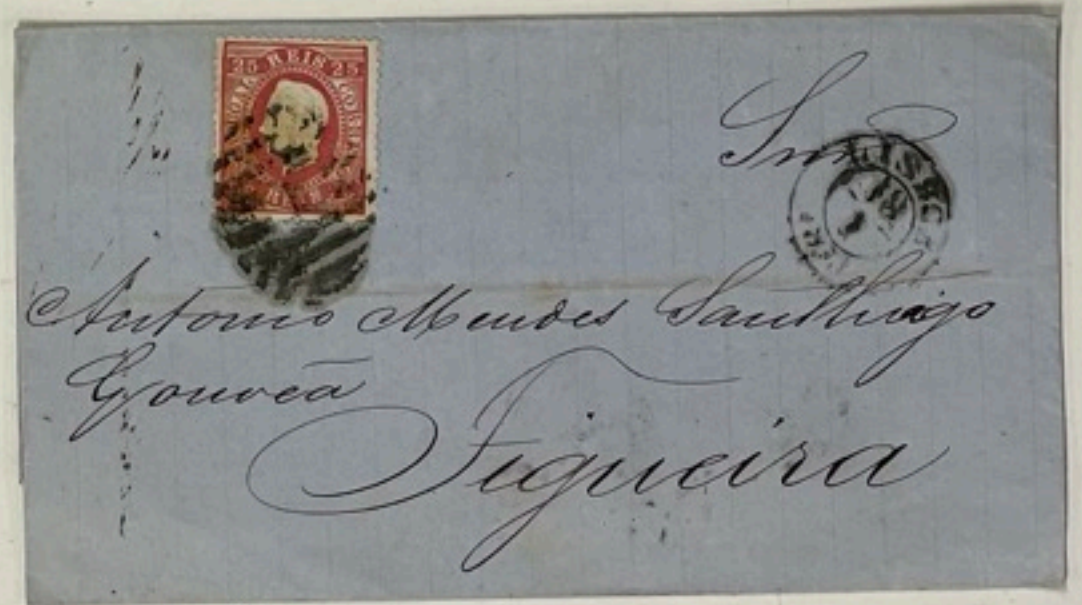 25 REIS 25
Snr
LISBO
Antonio Mendes Santhiago
Gouvêa
Figueira